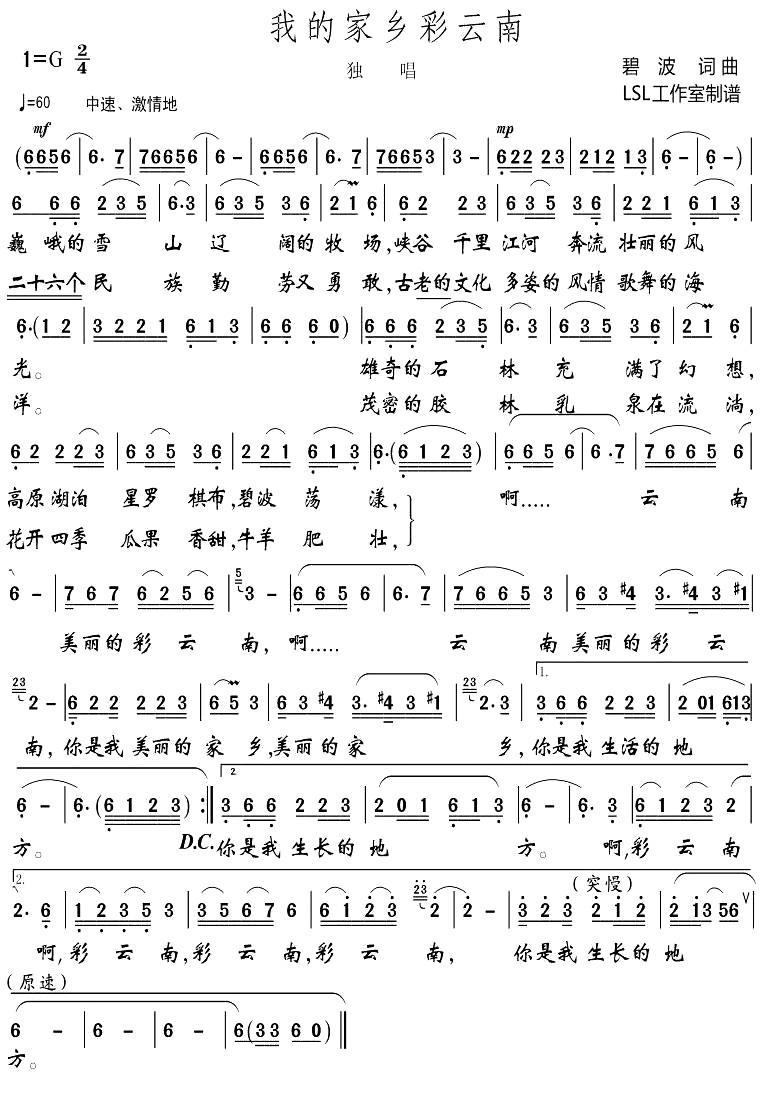 我的家乡彩云南
1=G 2/4
独 唱
碧 波 词曲
♩=60 中速、激情地
LSL工作室制谱
mf mp
(6656 | 6· 7 | 76656 | 6 - | 6656 | 6· 7 | 76653 | 3 - | 622 23 | 212 13 | 6 - | 6 -) |
6 66 235 | 6·3 | 635 36 | 21 6 | 62 23 | 635 36 | 221 613 |
巍 峨的雪 山 辽 阔的牧 场,峡谷 千里 江河 奔流 壮丽的风
二十六个民 族 勤 劳又 勇 敢,古老的文化 多姿的 风情 歌舞的海
6·(12 | 3221 613 | 66 60) | 666 235 | 6·3 | 635 36 | 21 6 |
光。 雄奇的石 林 充 满了幻 想,
洋。 茂密的胶 林 乳 泉在 流 淌,
62 223 | 635 36 | 221 613 | 6·(6123) | 6656 | 6·7 | 76652 | 6
高原 湖泊 星罗 棋布,碧波 荡 漾, 啊..... 云 南
花开四季 瓜果 香甜,牛羊 肥 壮,
6 - | 767 6256 | 5 3 - | 6656 | 6· 7 | 76653 | 63#4 3·#43#1 |
美丽的彩 云 南, 啊..... 云 南 美丽的彩 云
23 2 - | 622 223 | 65 3 | 63#4 3·#43#1 | 23 2·3 | 1. 366 223 | 201 613 |
南, 你是我 美丽的 家 乡,美丽的家 乡, 你是我 生活的 地
6 - | 6·(6123) :‖ 2 366 223 | 201 613 | 6 - | 6· 3 | 6123 2
方。 D.C. 你是我 生长的 地 方。 啊,彩 云 南
2. 2· 6 | 1235 | 3567 6 | 6123 | 23 2 | 2 - | 323 (突慢) 212 | 21356 V
啊,彩 云 南,彩 云 南,彩 云 南, 你是我 生长的 地
(原速)
6 - | 6 - | 6 - | 6(33 60) ‖
方。